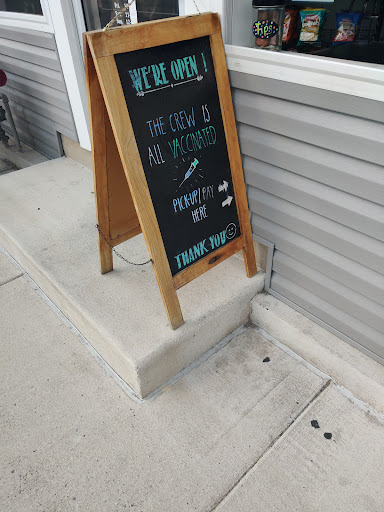 WE'RE OPEN !
THE CREW IS
ALL VACCINATED
PICK-UP/PAY
HERE
THANK YOU